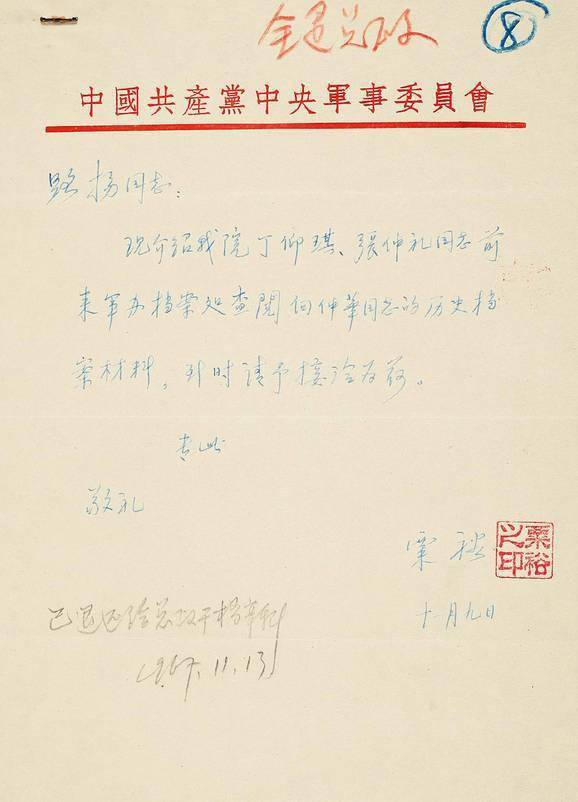 全退总政
8
中國共産黨中央軍事委員會
路杨同志：
现介绍我院丁仰琪、張仲礼同志前
来军办档案处查閱向仲華同志的历史档
案材料，到时请予接洽为荷。
专此
敬礼
粟裕
粟裕之印
十月九日
已退还给总政干档案科
1967.11.13